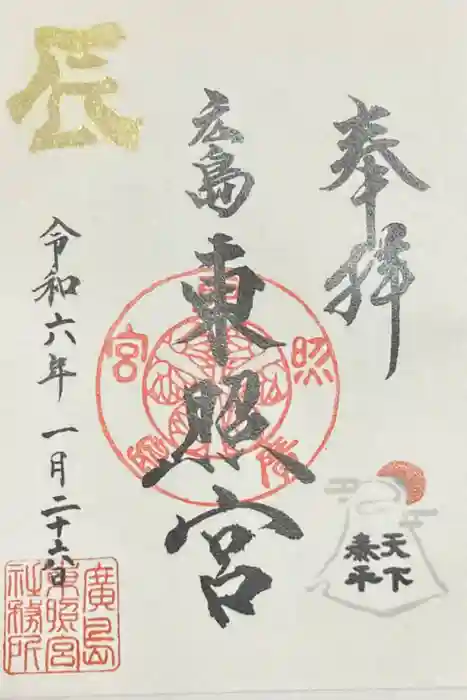 奉拝
広島
東照宮
辰
令和六年一月二十六日
天下
泰平
廣島
東照宮
社務所